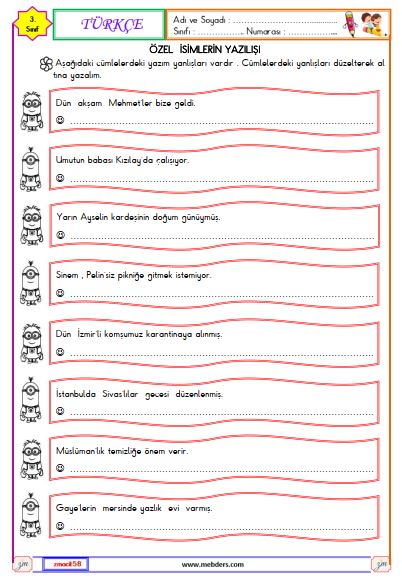 3.
Sınıf
TÜRKÇE
Adı ve Soyadı : ......................................................
Sınıfı : ................... Numarası : ...................
ÖZEL İSİMLERİN YAZILIŞI
Aşağıdaki cümlelerdeki yazım yanlışları vardır . Cümlelerdeki yanlışları düzelterek al
tına yazalım.
Dün akşam Mehmet'ler bize geldi.
Umutun babası Kızılay'da çalışıyor.
Yarın Ayselin kardeşinin doğum günüymüş.
Sinem , Pelin'siz pikniğe gitmek istemiyor.
Dün İzmir'li komşumuz karantinaya alınmış.
İstanbulda Sivas'lılar gecesi düzenlenmiş.
Müslüman'lık temizliğe önem verir.
Gayelerin mersinde yazlık evi varmış.
zm
zmacit58
www.mebders.com
zm